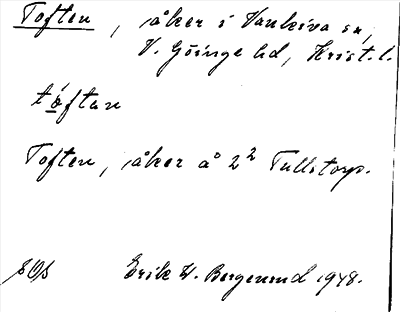 Toften, åker i Vankiva sn,
V. Göinge hd, Krist. l.
tóftan
Toften, åker å 2² Tullstorp.
SOS Erik W. Bergenrud 1948.